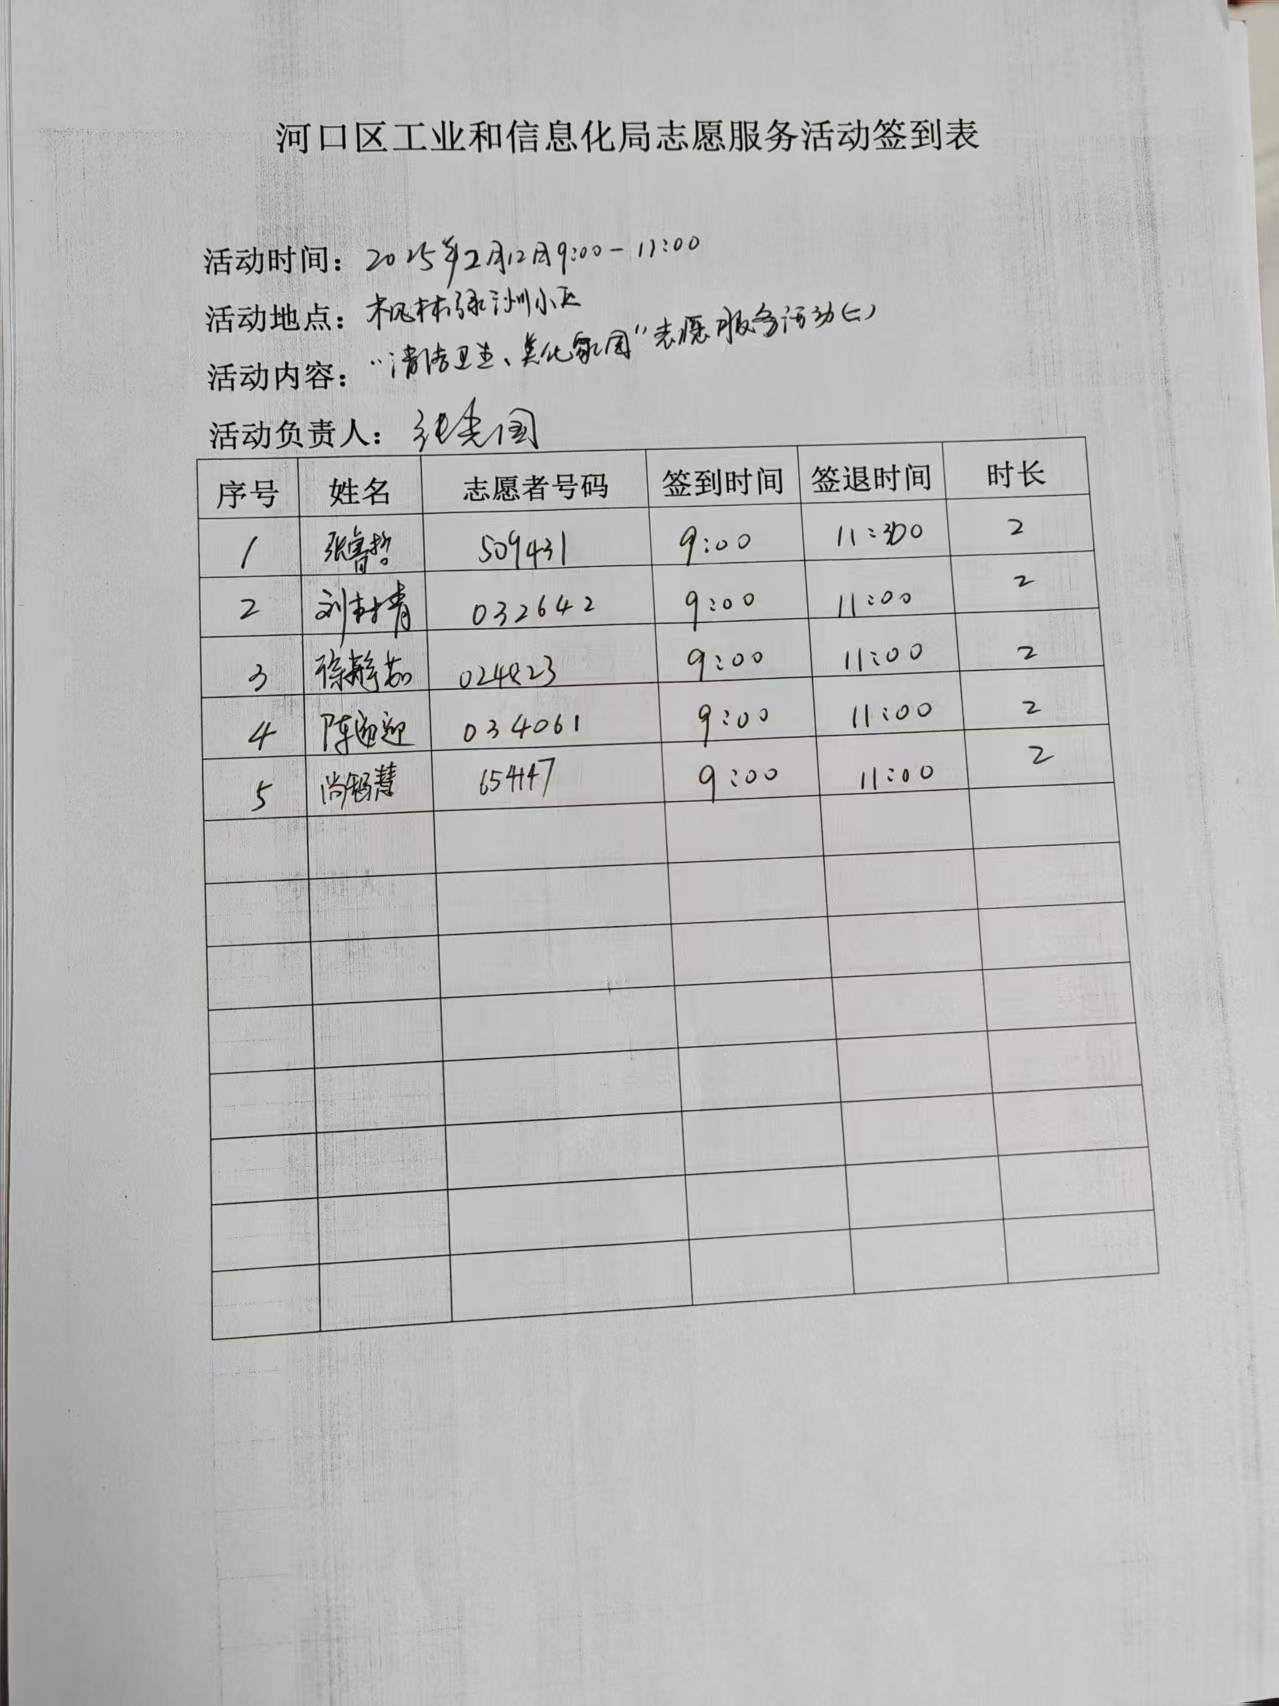 河口区工业和信息化局志愿服务活动签到表
活动时间：2025年2月12日9:00-11:00
活动地点：枫林绿洲小区
活动内容："清洁卫生、美化家园"志愿服务活动(二)
活动负责人：张忠国
序号 姓名 志愿者号码 签到时间 签退时间 时长
1 张鲁哲 509431 9:00 11:00 2
2 刘树青 032642 9:00 11:00 2
3 徐静茹 024823 9:00 11:00 2
4 陈迎迎 034061 9:00 11:00 2
5 尚锡慧 65447 9:00 11:00 2